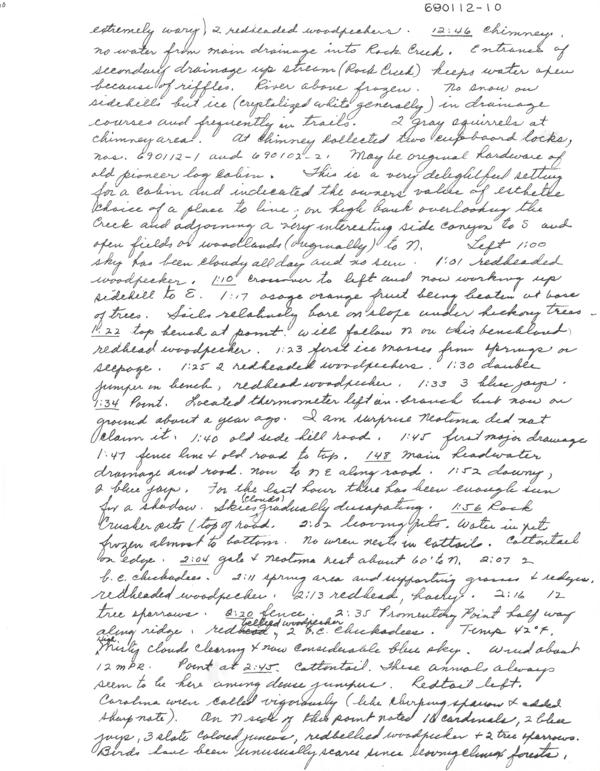 690112-10
extremely wary) 2 redheaded woodpeckers. 12:46 chimney.
no water from main drainage into Rock Creek. Entrance of
secondary drainage up stream (Rock Creek) keeps water open
because of riffles. River above frozen. No snow on
sidehills but ice (cryptalized white generally) in drainage
courses and frequently in trails. 2 gray squirrels at
chimney area. At chimney collected two cupboard locks,
nos. 690112-1 and 690102-2. Maybe original hardware of
old pioneer log cabin. This is a very delightful setting
for a cabin and indicated the owners value of esthetic
choice of a place to live; on high bank overlooking the
Creek and adjoining a very interesting side canyon to S and
open fields or woodlands (originally) to N. Left 1:00
sky has been cloudy all day and no sun. 1:01 redheaded
woodpecker. 1:10 crossover to left and now working up
sidehill to E. 1:17 osage orange fruit being eaten at base
of trees. Soils relatively bare on slope under hickory trees -
1:22 top bench at point. Will follow N on this benchland,
redhead woodpecker. 1:23 first ice masses from springs or
seepage. 1:25 2 redheaded woodpeckers. 1:30 double
juniper on bench, redhead woodpecker. 1:33 3 blue jays.
1:34 Point. Located thermometer left on branch but now on
ground about a year ago. I am surprise Neotoma did not
claim it. 1:40 old side hill road. 1:45 first major drainage
1:47 fence line & old road to top. 148 main headwater
drainage and road. now to NE along road. 1:52 downy,
2 blue jays. For the last hour there has been enough sun
for a shadow. Skies (clouds) gradually dissapating. 1:56 Rock
Crusher pits (top of road. 2:02 leaving pits. Water in pit
frozen almost to bottom. No wren nests in cattails. Cottontail
on edge. 2:04 gate & Neotoma nest about 60' to N. 2:07 2
b.c. chickadees. 2:11 spring area and supporting grasses & sedges.
redheaded woodpecker. 2:13 redhead, hairy. 2:16 12
tree sparrows. 2:20 fence. 2:35 Promentory Point half way
along ridge. redbellied woodpecker, 2 b.c. chickadees. Temp 42° F.
Misty clouds clearing & now considerable blue sky. Wind about
12 MPR. Point at 2:45. Cottontail. These animals always
seem to be here among dense junipers. Redtail left.
Carolina wren called vigorously (like chirping sparrow & added
sharp note). On N side of this point noted 10 cardinals, 2 blue
jays, 3 slate colored juncos, redbellied woodpecker & 2 tree sparrows.
Birds have been unusually scarce since leaving climax forests,